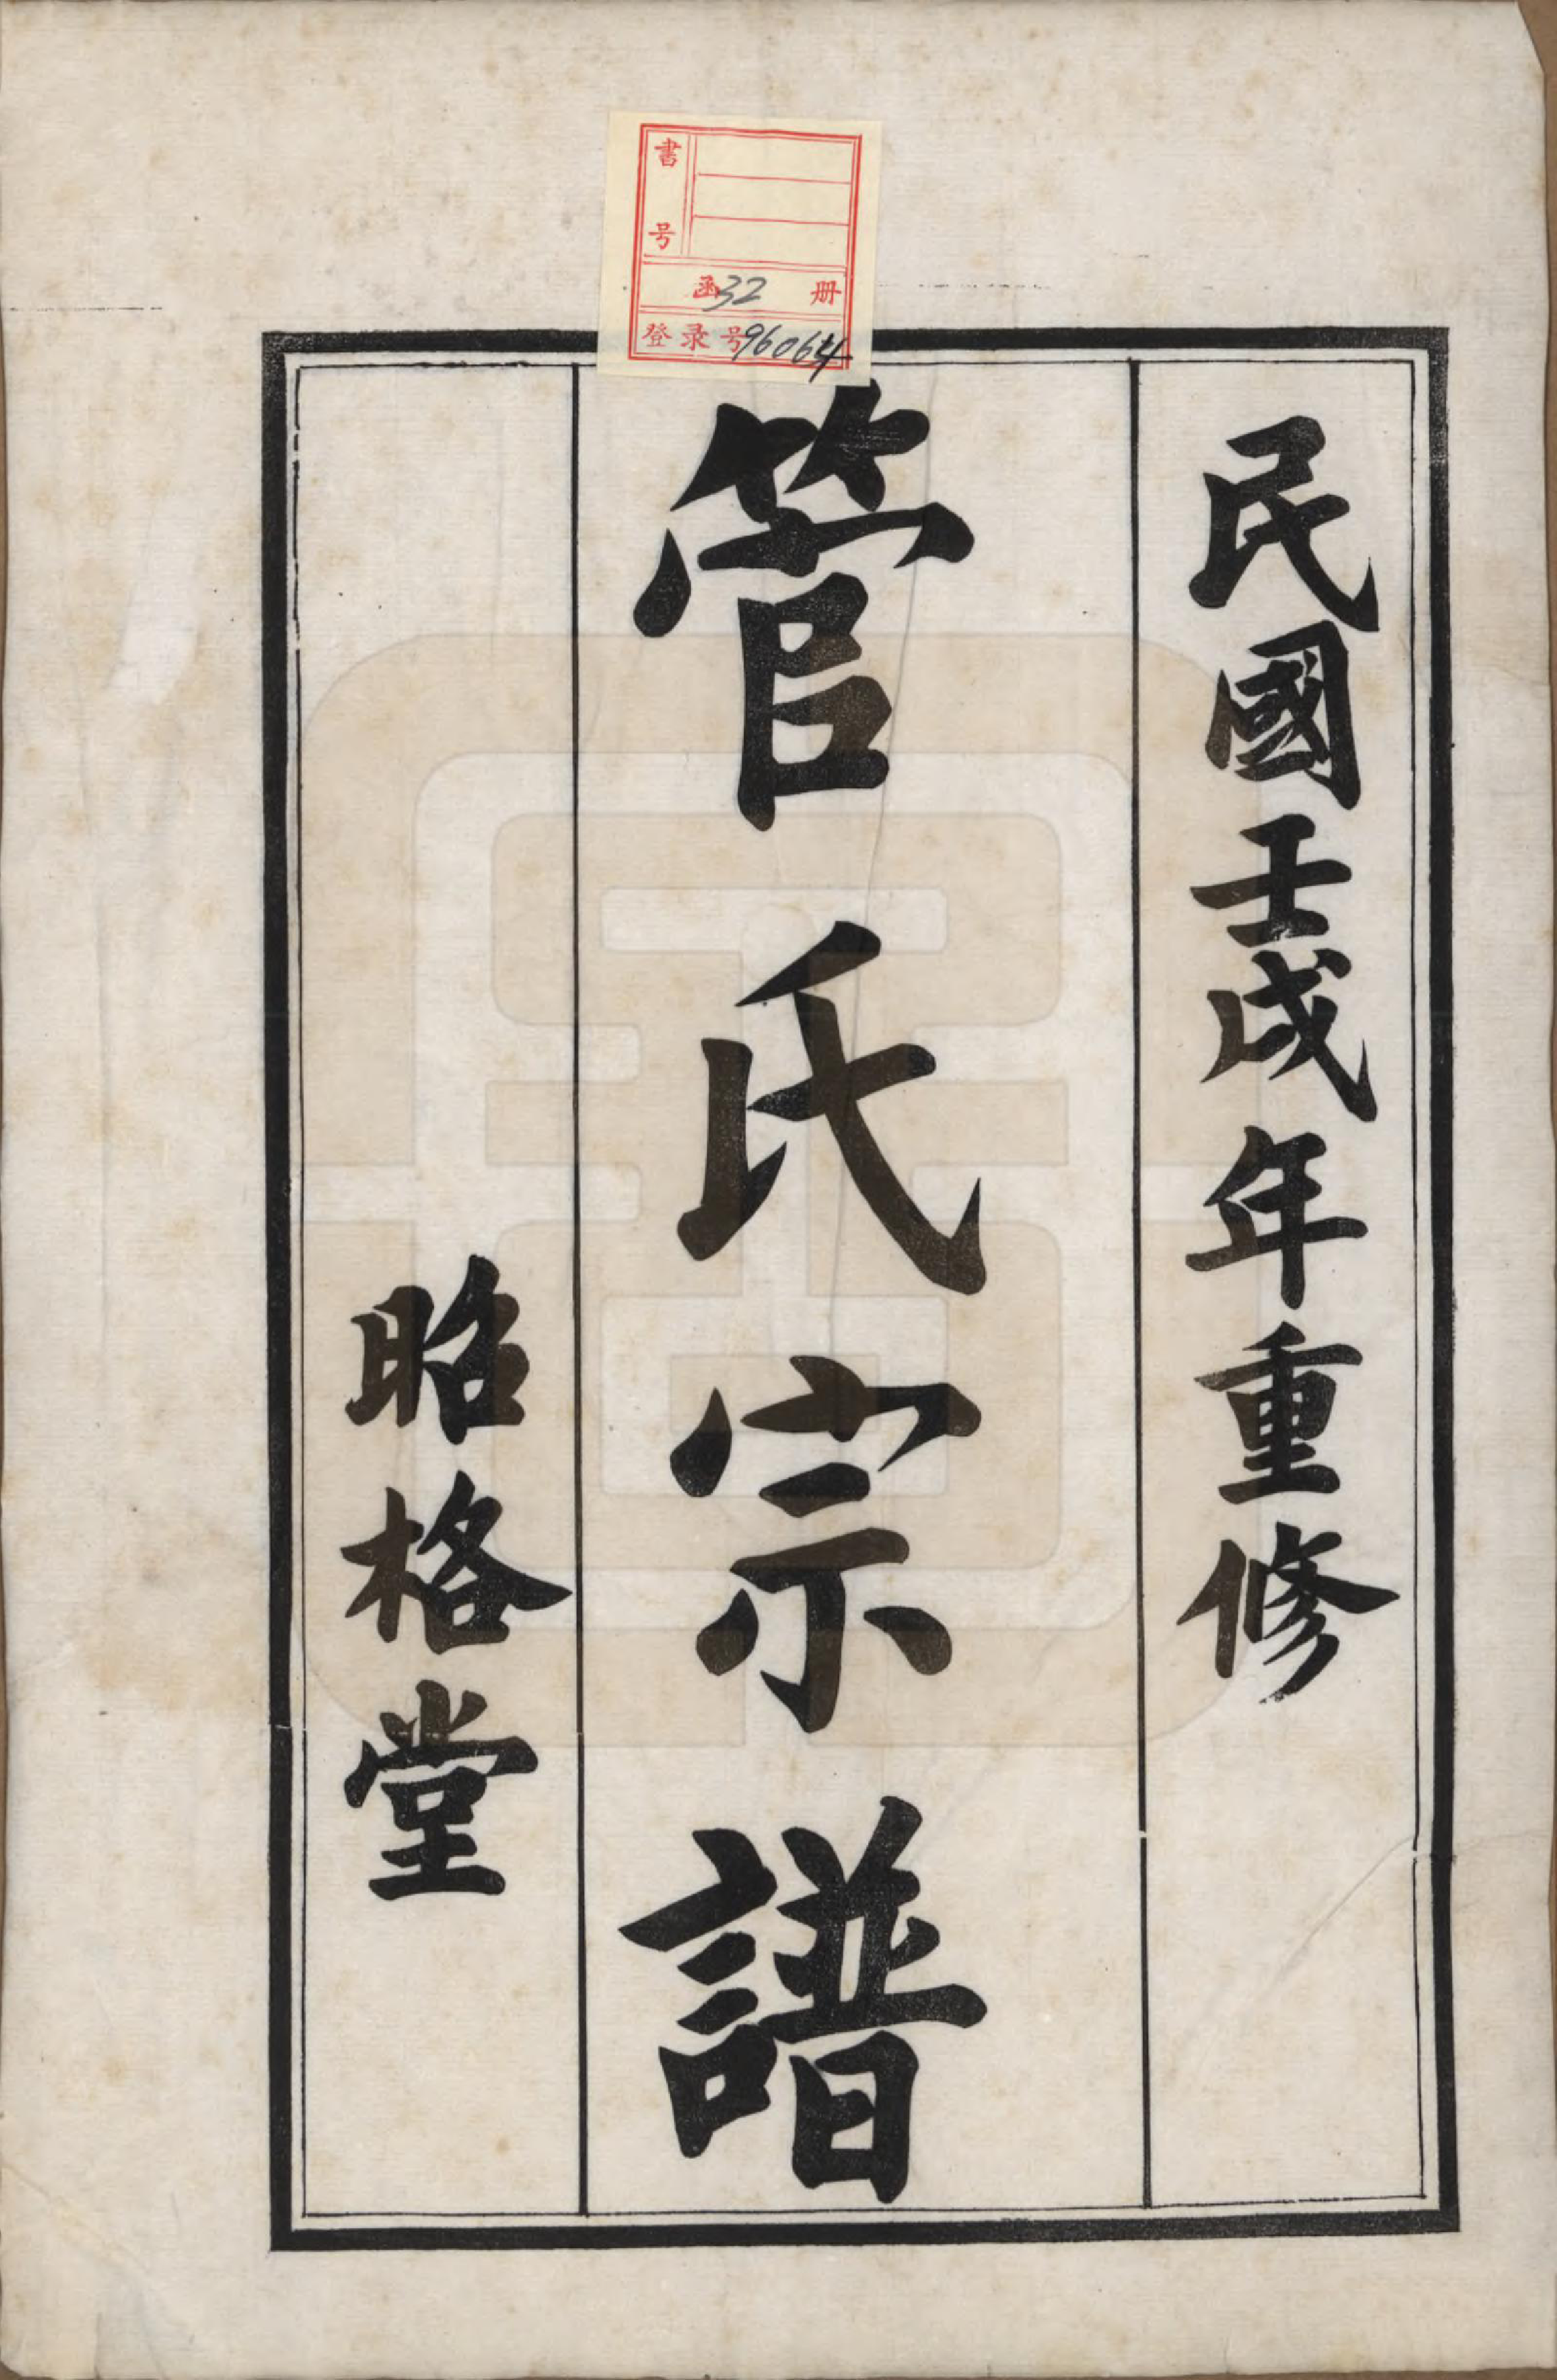 書号
函32 册
登录号96064
民國壬戌年重修
管氏宗譜
昭格堂